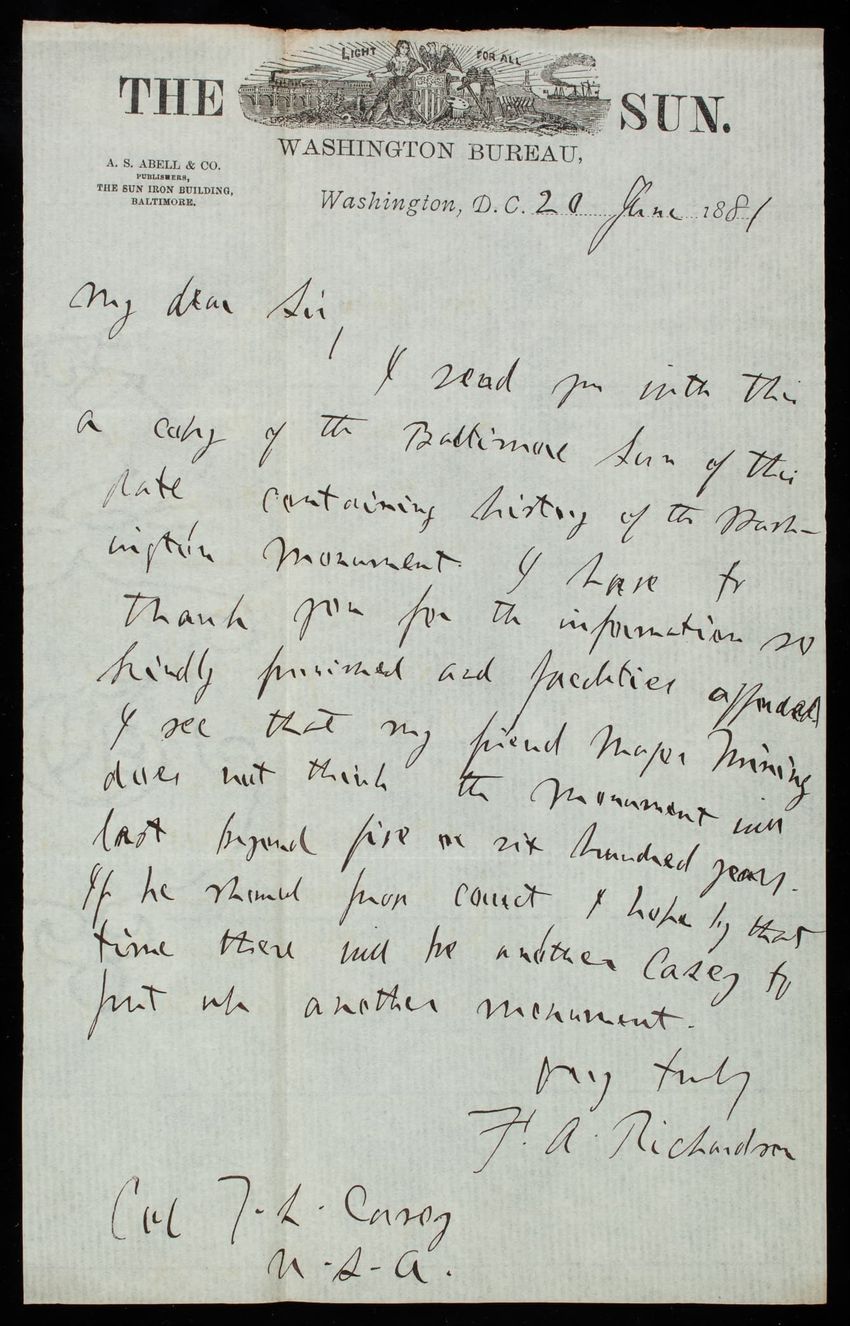 LIGHT FOR ALL
THE SUN.
WASHINGTON BUREAU,
A. S. ABELL & CO.
PUBLISHERS,
THE SUN IRON BUILDING,
BALTIMORE.
Washington, D.C. 20 June 1881
My dear Sir,
I send you with this
a copy of the Baltimore Sun of this
date containing history of the Wash-
ington Monument. I have to
thank you for the information so
kindly furnished and facilities afforded
I see that my friend Major
does not think the Monument will
last beyond five or six hundred years.
If he should prove correct I hope by that
time there will be another Casey to
put up another monument.
Very truly
F. A. Richardson
Col T. L. Casey
U. S. A.